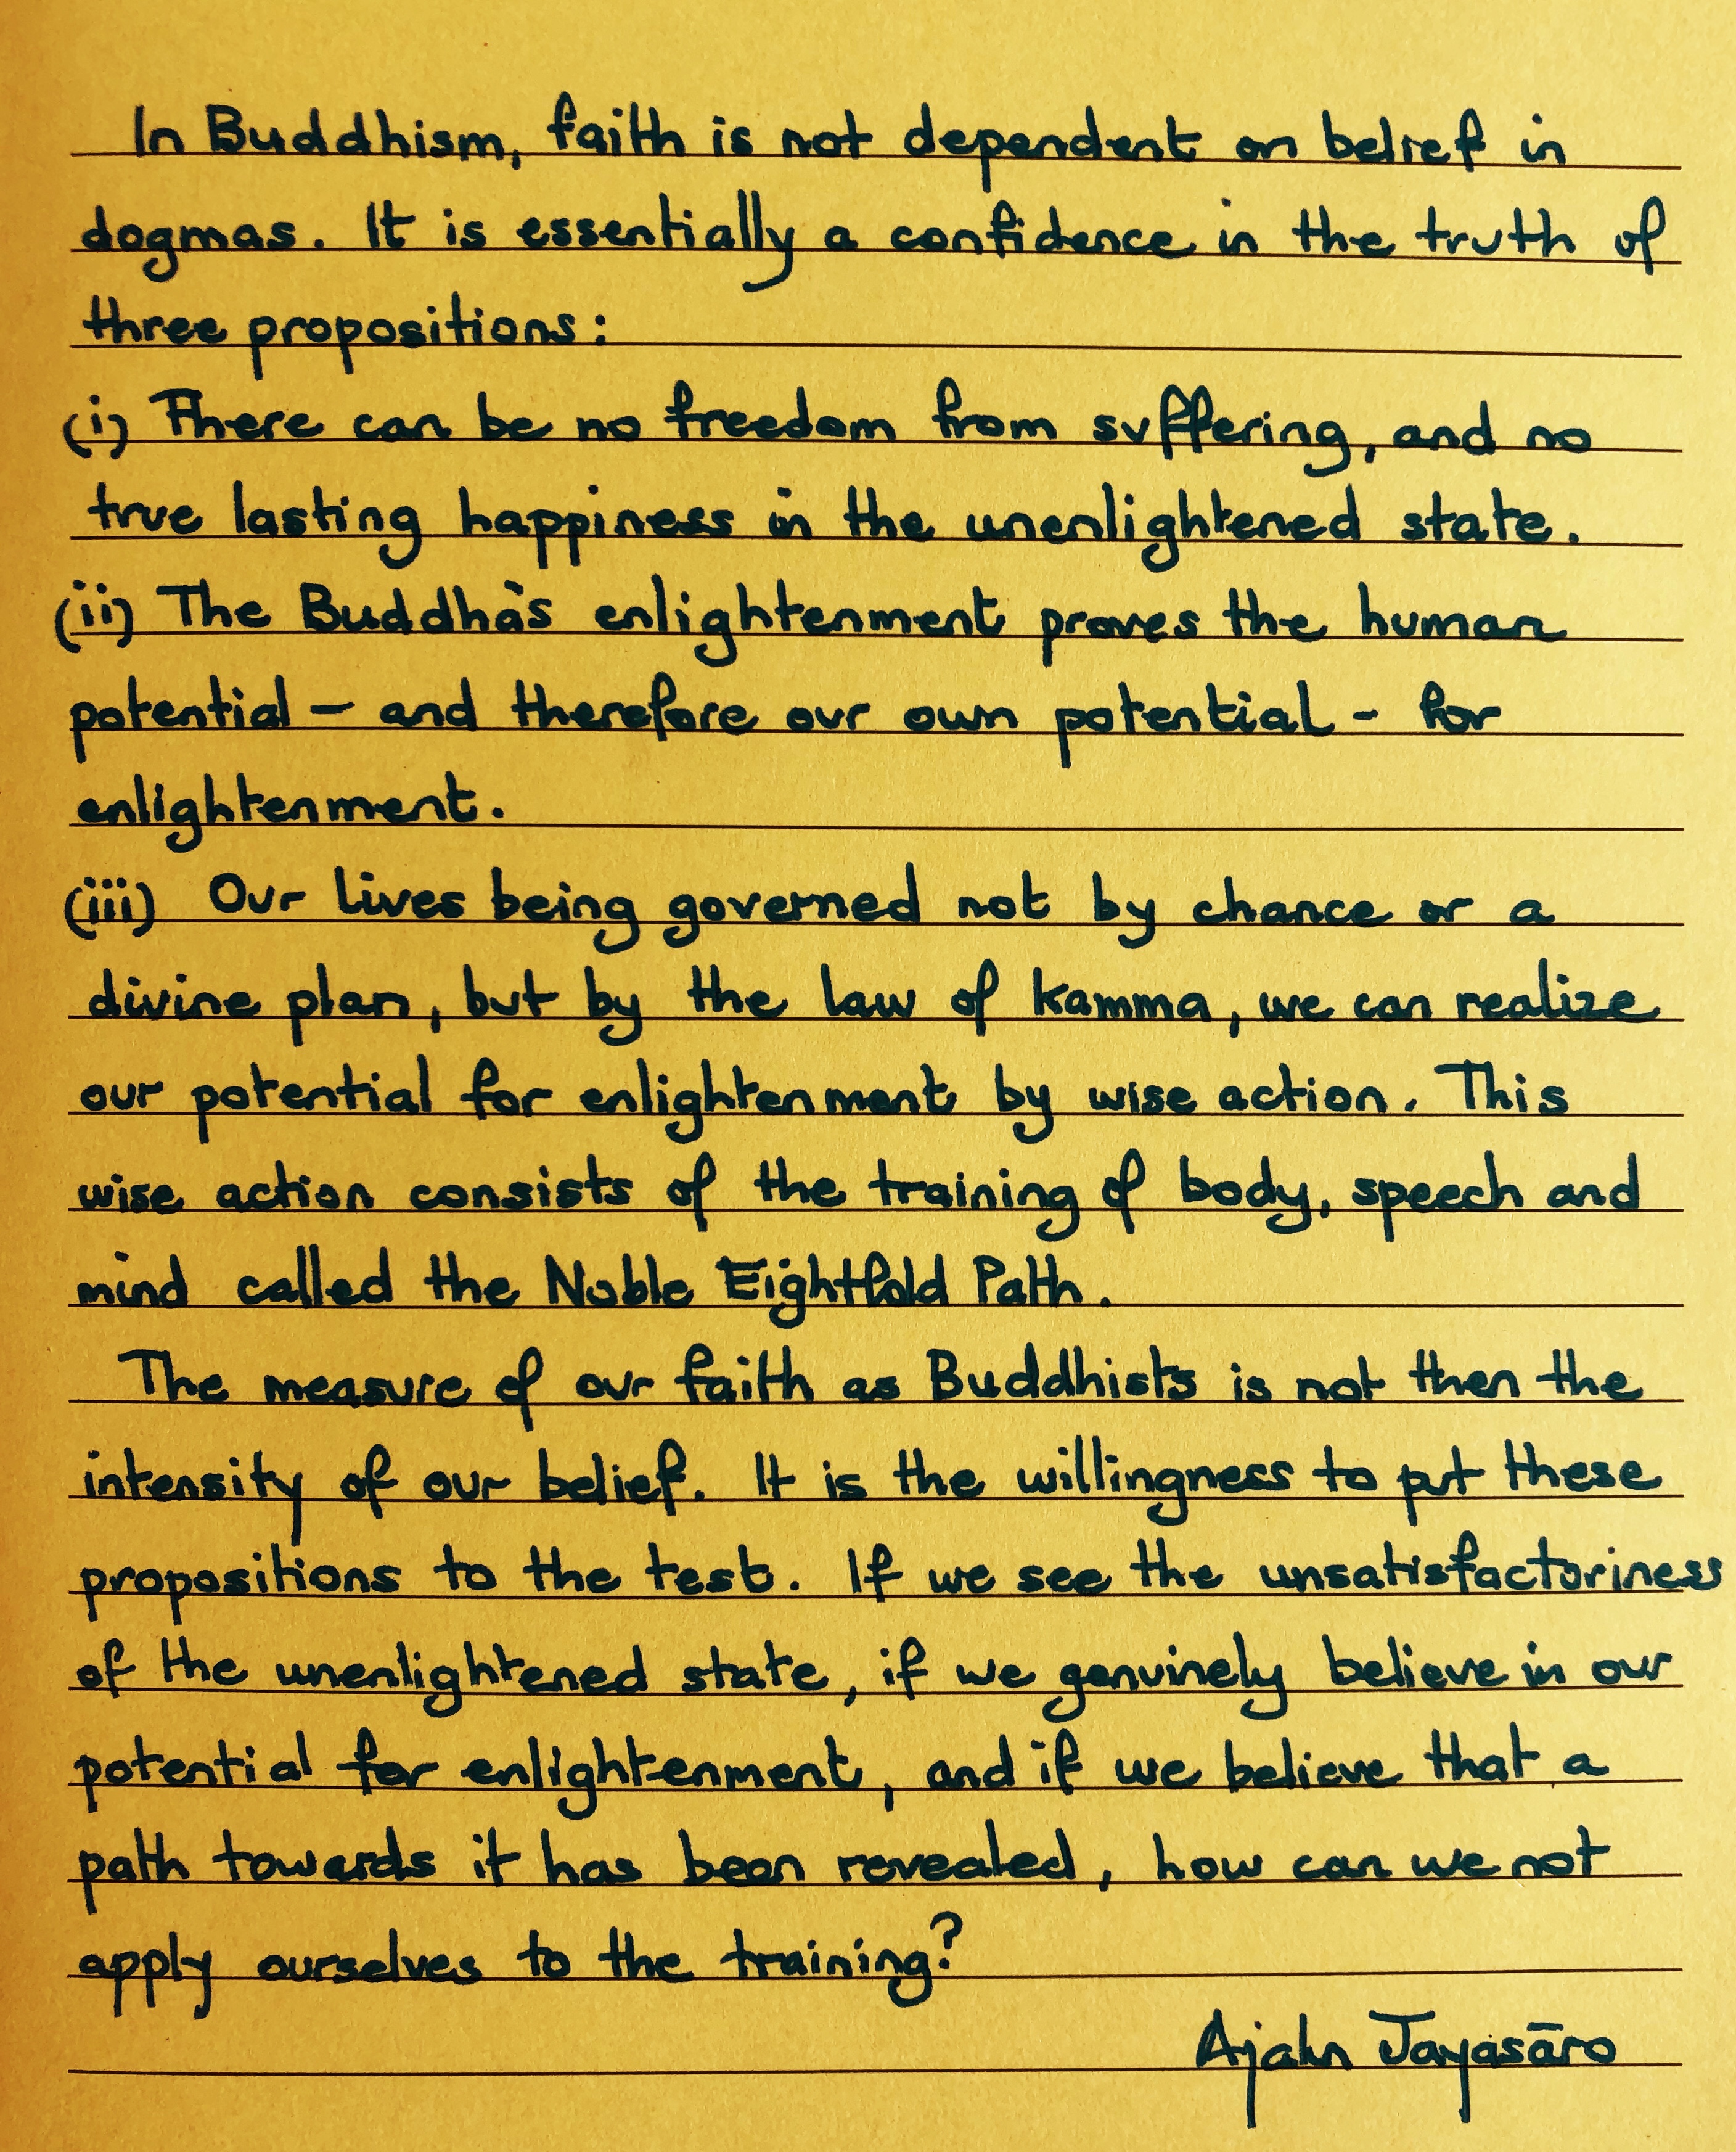 In Buddhism, faith is not dependent on belief in
dogmas. It is essentially a confidence in the truth of
three propositions:
(i) There can be no freedom from suffering, and no
true lasting happiness in the unenlightened state.
(ii) The Buddha's enlightenment proves the human
potential – and therefore our own potential – for
enlightenment.
(iii) Our lives being governed not by chance or a
divine plan, but by the law of kamma, we can realize
our potential for enlightenment by wise action. This
wise action consists of the training of body, speech and
mind called the Noble Eightfold Path.
The measure of our faith as Buddhists is not then the
intensity of our belief. It is the willingness to put these
propositions to the test. If we see the unsatisfactoriness
of the unenlightened state, if we genuinely believe in our
potential for enlightenment, and if we believe that a
path towards it has been revealed, how can we not
apply ourselves to the training?
Ajahn Jayasāro